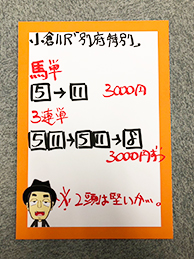 小倉11R「別府特別」
馬単
5→11 3000円
3連単
5 11→5 11→2
3000円ずつ
※2頭は堅いかぁ。